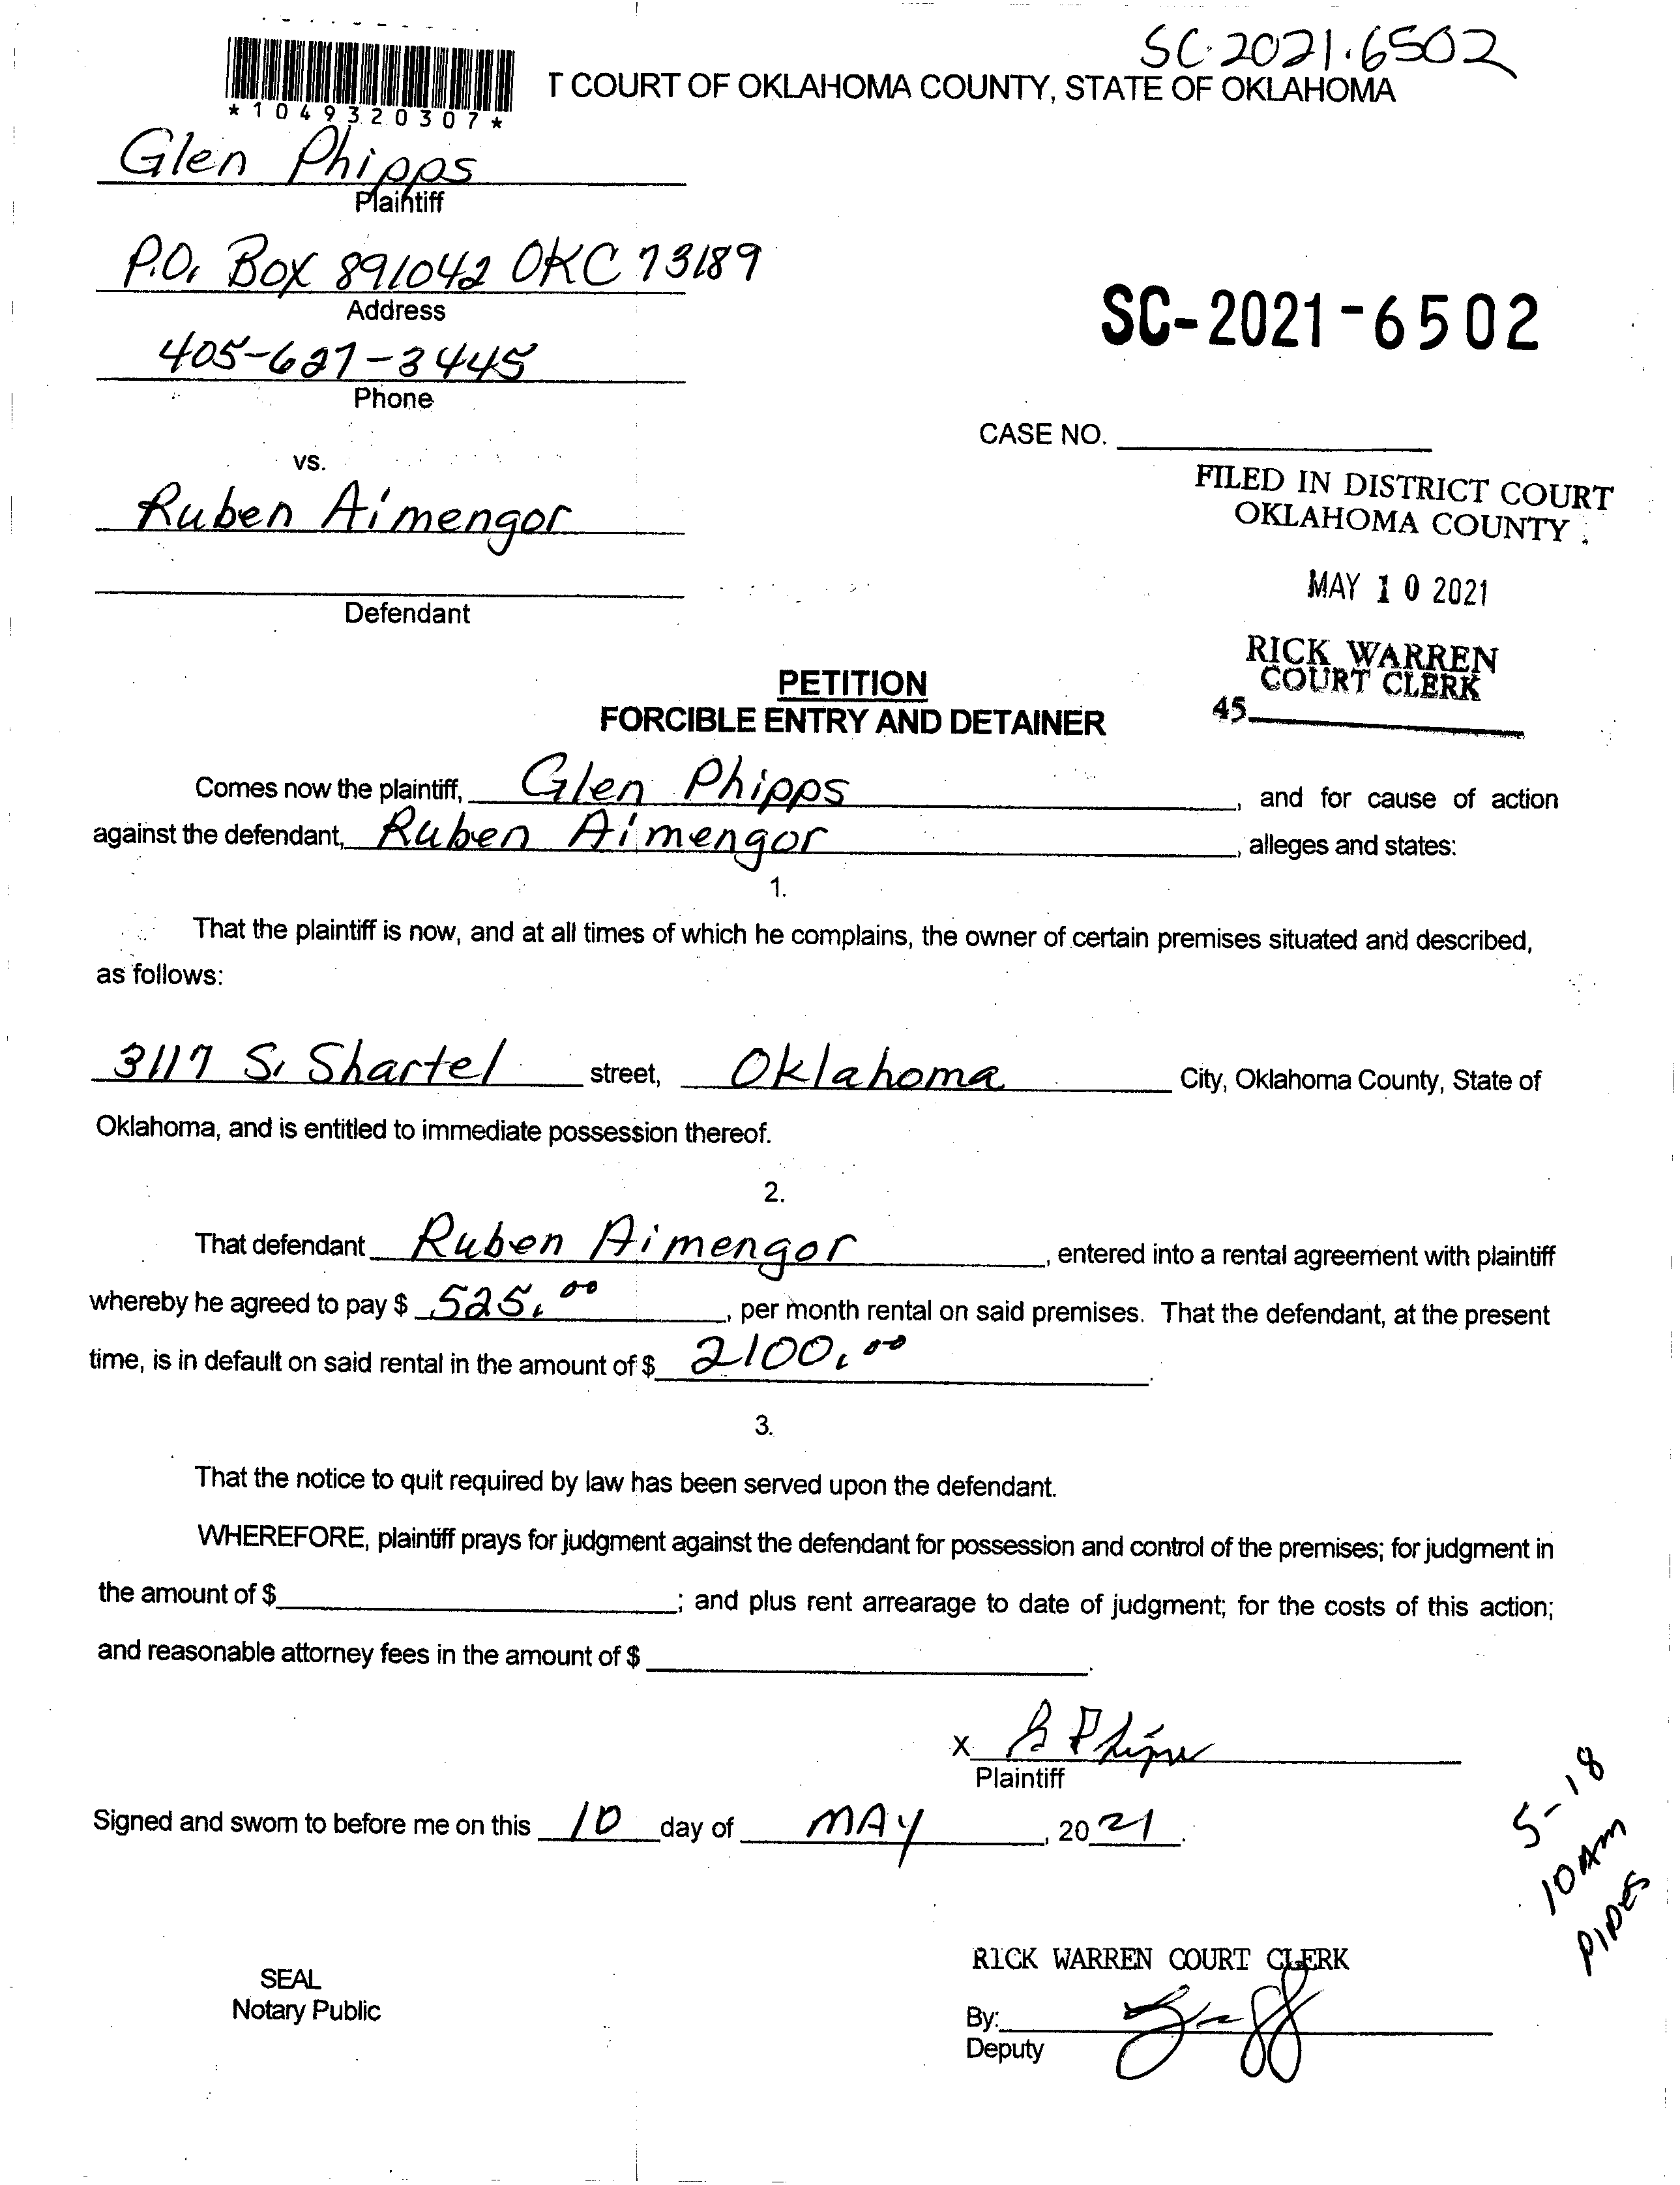 SC-2021-6502
T COURT OF OKLAHOMA COUNTY, STATE OF OKLAHOMA
*1049320307*
Glen Phipps
Plaintiff
P.O. Box 891042 OKC 73189
Address
SC-2021-6502
405-627-3445
Phone
CASE NO.
vs.
FILED IN DISTRICT COURT
OKLAHOMA COUNTY
Ruben Aimengor
MAY 10 2021
Defendant
RICK WARREN
COURT CLERK
45
PETITION
FORCIBLE ENTRY AND DETAINER
Comes now the plaintiff, Glen Phipps, and for cause of action
against the defendant, Ruben Aimengor, alleges and states:
1.
That the plaintiff is now, and at all times of which he complains, the owner of certain premises situated and described,
as follows:
3117 S. Shartel street, Oklahoma City, Oklahoma County, State of
Oklahoma, and is entitled to immediate possession thereof.
2.
That defendant Ruben Aimengor, entered into a rental agreement with plaintiff
whereby he agreed to pay $ 525.00, per month rental on said premises. That the defendant, at the present
time, is in default on said rental in the amount of $ 2100.00.
3.
That the notice to quit required by law has been served upon the defendant.
WHEREFORE, plaintiff prays for judgment against the defendant for possession and control of the premises; for judgment in
the amount of $; and plus rent arrearage to date of judgment; for the costs of this action;
and reasonable attorney fees in the amount of $.
X G Phipps
Plaintiff
Signed and sworn to before me on this 10 day of MAY, 2021.
5-18
10AM
PIPES
RICK WARREN COURT CLERK
SEAL
Notary Public
By:
Deputy